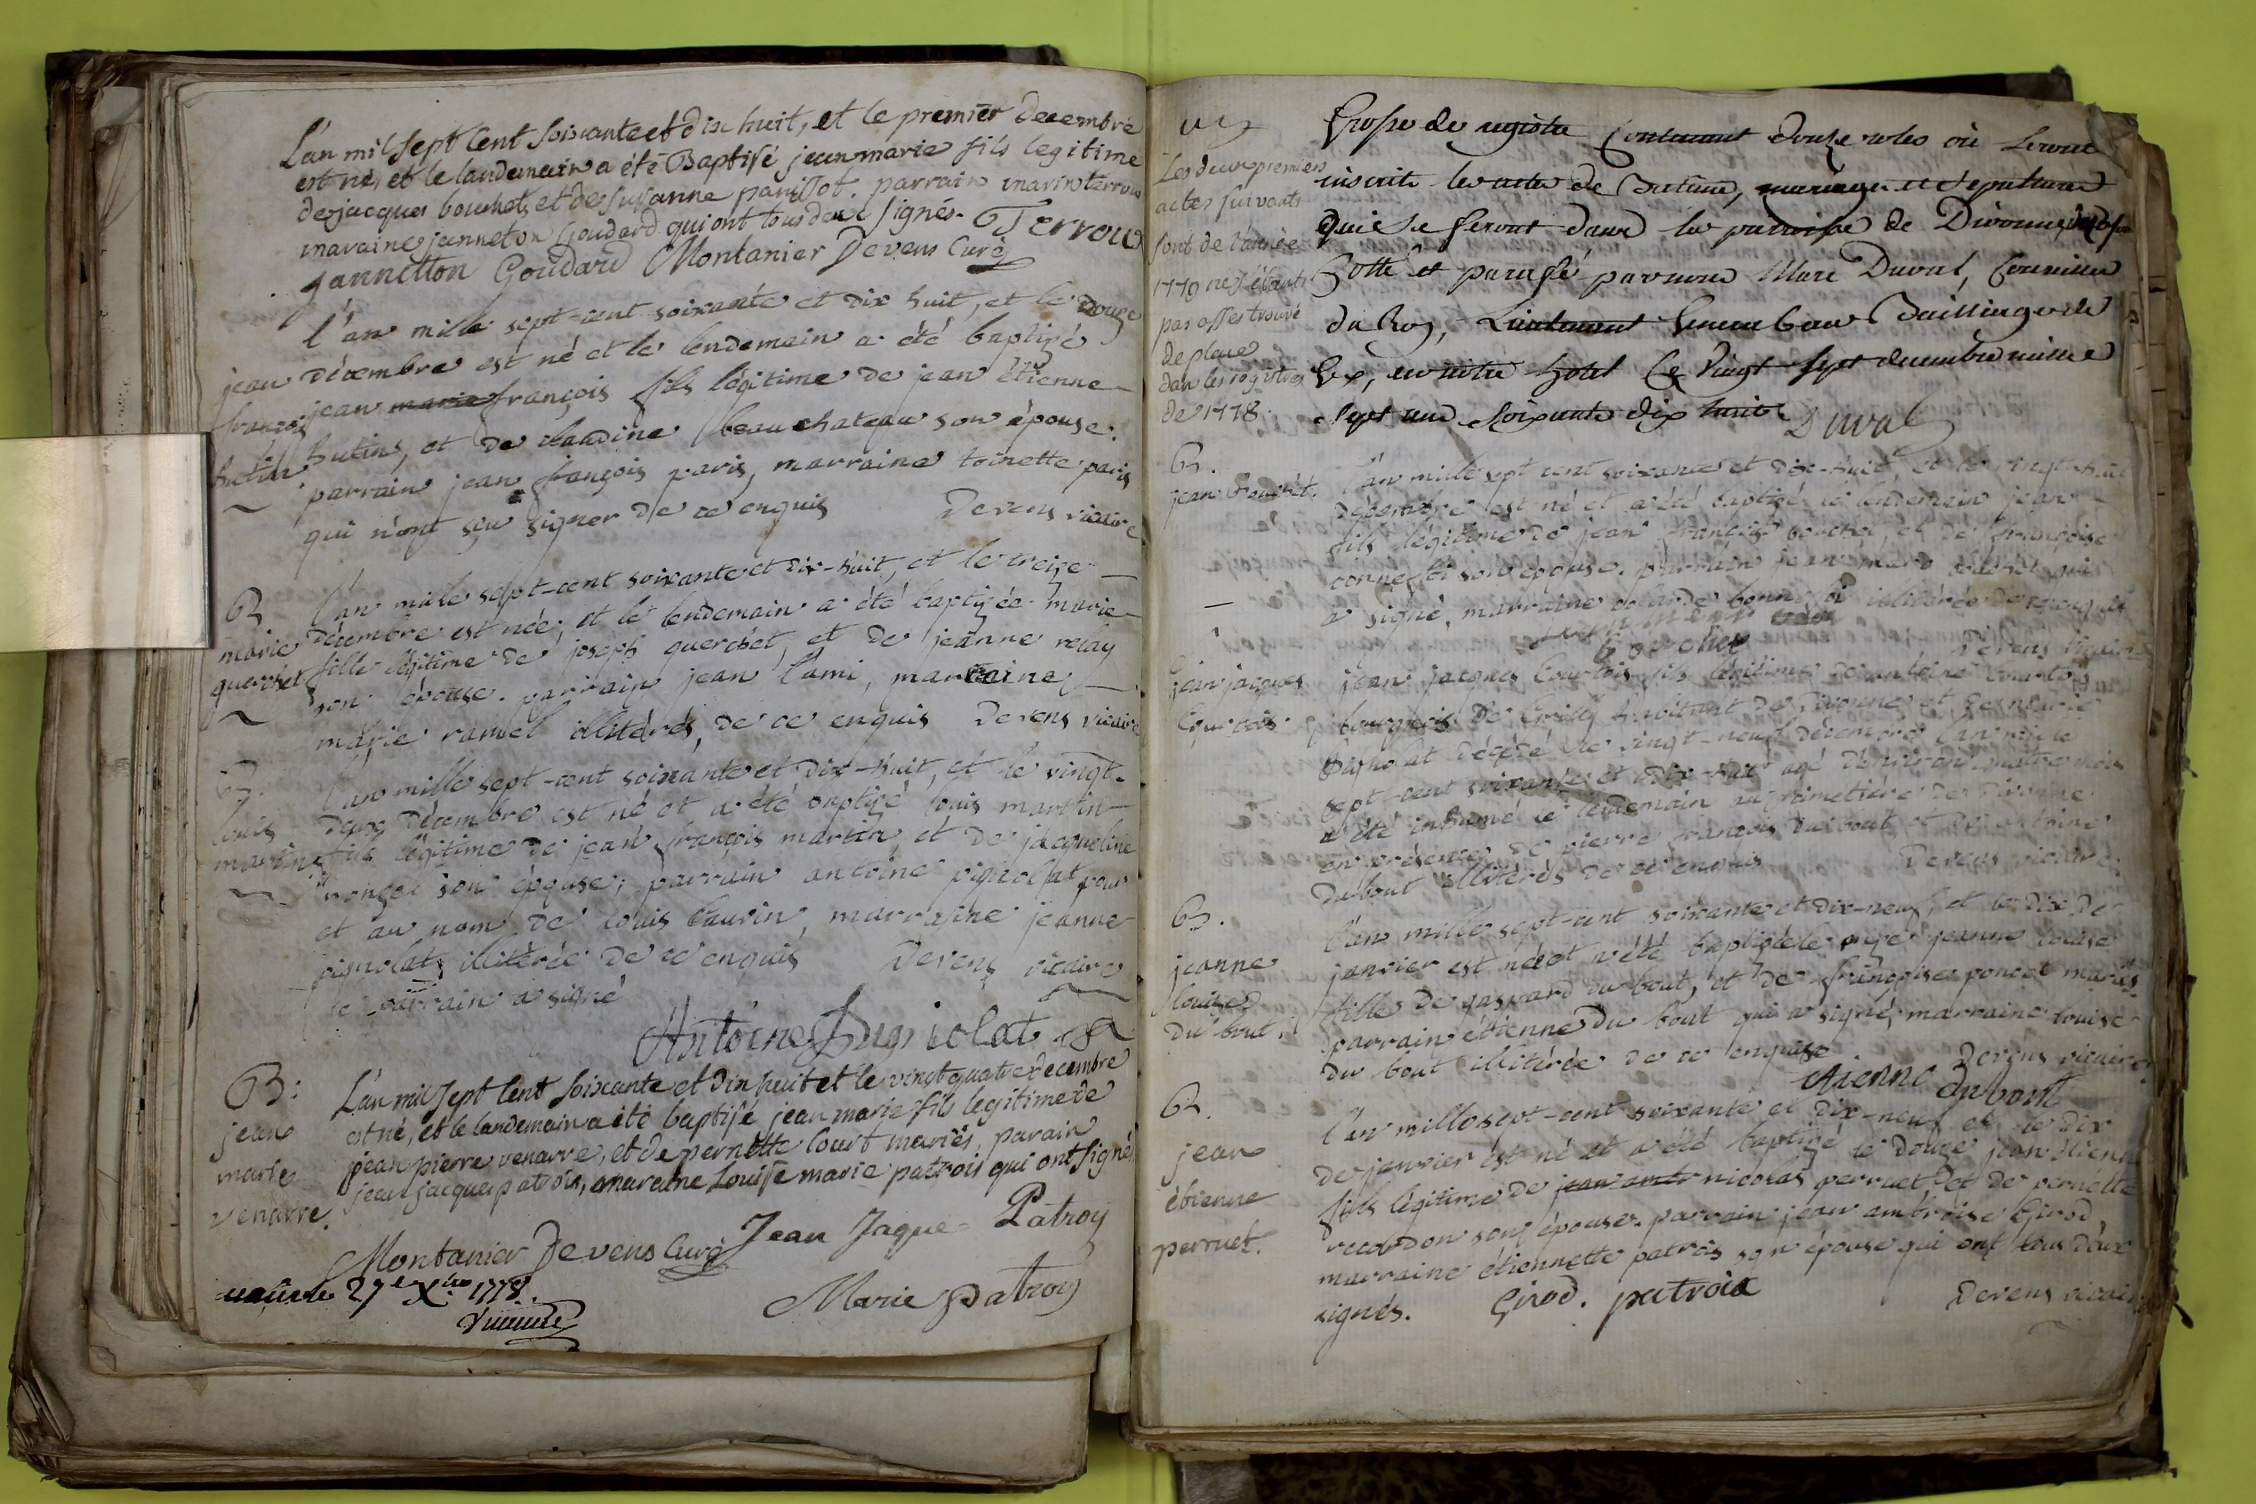 L'an mil sept Cent soixante et dix huit, et le premier decembre
est né, et le landemain a été Baptisé jean marie fils legitime
de jacques bouchet, et de susanne panissot. parrain marin terroux
maraine janneton Goudard qui ont tous deux signés. Terroux
Jannetton Goudard Montanier Devens Curé
l'an mille sept-cent soixante et dix huit, et le douze
jean
françois
hutin
décembre est né et le lendemain a été baptizé
jean marie françois fils légitime de jean étienne
hutin, et de claudine beauchateau son épouse.
parrain jean françois paris, marraine toinette paris
qui n'ont sçu signer de ce enquis Devens vicaire
B
marie
querchet
l'an mille sept-cent soixante et dix-huit, et le treize
décembre est née, et le lendemain a été baptizée marie
fille légitime de joseph querchet, et de jeanne relay
son épouse. parrain jean l'ami, marraine
marie ravel illitérés, de ce enquis Devens vicaire
B.
louis
martin
l'an mille sept-cent soixante et dix-huit, et le vingt-
deux décembre est né et a été baptizé louis martin
fils légitime de jean françois martin, et de jacqueline
son épouse; parrain antoine pignolat pour
et au nom de louis laurin, marraine jeanne
pignolat illitérée de ce enquis Devens vicaire
le parrain a signé
Antoine Pugniolat
B:
jean
marie
venarre.
L'an mil sept Cent soixante et dix huit et le vingt quatre decembre
est né, et le landemain a été baptisé jean marie fils legitime de
jean pierre venarre, et de pernette Court mariés, parain
jean jacque patrois, maraine Louise marie patrois qui ont signés
Montanier Devens Curé Jean Jaque Patroy
Marie patroy
27e Xbre 1778.
Les deux premiers
actes suivants
sont de l'année
1779 ne s'étant
pas assés trouvé
de place
dans les registres
de 1778.
Grosse de registre Contenant douze roles où seront
inscrits les actes de Batême, mariages et sepultures
qui se feront dans la paroisse de Divonne,
Cotté et parafé par nous Marc Duval, Conseiller
du Roy, Lieutenant General au Bailliage de
Gex, en notre hotel Ce Vingt sept decembre mil
sept cent soixante dix huit Duval
B.
jean bouchet.
l'an mille sept cent soixante et dix-huit et le vingt-huit
décembre est né et a été baptizé le lendemain jean
fils légitime de jean françois bouchet et de françoise
son épouse. parrain jean marie bouchet qui
a signé, marraine illitérée de ce enquis
bouchet Devens vicaire
jean jacques
Courtois
jean jacques Courtois fils légitime d'antoine Courtois
bourgeois de habitant de Divonne et de marie
pignolat décédé le vingt-neuf décembre l'an mille
sept-cent soixante et dix-huit agé d'environ quatre mois
a été inhumé le lendemain au cimetière de Divonne
en présence de pierre françois du bout et d'antoine
du bout illitérés de ce enquis Devens vicaire
B.
jeanne
louise
du bout.
l'an mille sept-cent soixante et dix-neuf, et le dix de
janvier est née et a été baptizée le onze jeanne louise
fille de gaspard du bout, et de françoise poncet mariés
parrain étienne du bout qui a signé, marraine louise
du bout illitérée de ce enquise Devens vicaire
etienne dubout
B.
jean
étienne
perruet.
l'an mille sept-cent soixante et dix-neuf et le dix
de janvier est né et a été baptizé le douze jean étienne
fils légitime de nicolas perruet et de pernette
recordon son épouse. parrain jean ambroise Girod,
marraine étiennette patrois son épouse qui ont tous deux
signés. Girod. patroix Devens vicaire